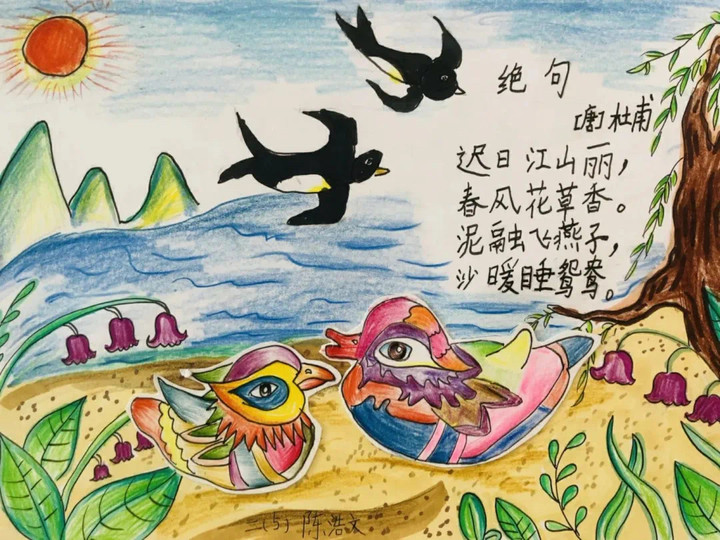 绝句
[唐]杜甫
迟日江山丽，
春风花草香。
泥融飞燕子，
沙暖睡鸳鸯。
二（5）陈浩文